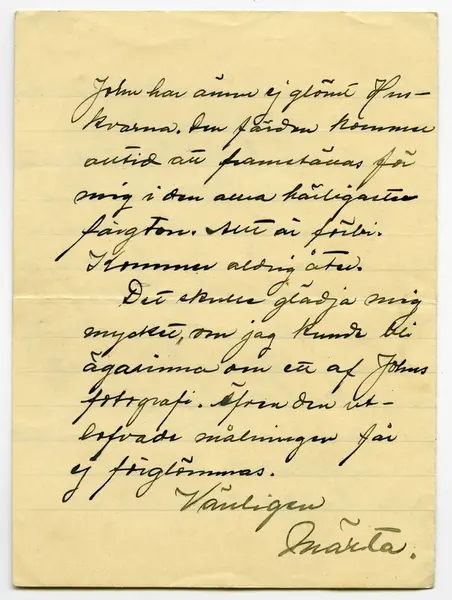 John har ännu ej glömt Hus-
kvarna. Den färden kommer
alltid att framstå för
mig i den allra härligaste
färgton. Allt är förbi.
Kommer aldrig åter.
Det skulle glädja mig
mycket, om jag kunde bli
ägarinna om ett af Johns
fotografi. Äfven den ut-
lofvade målningen får
ej förglömmas.
Vänligen
Märta.